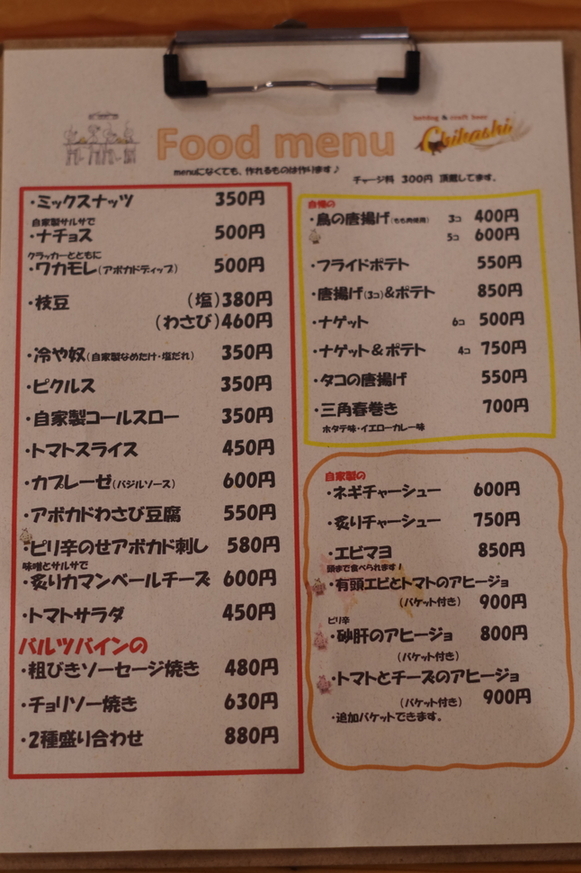 Food menu
hotdog & craft beer
Chikashi
menuになくても、作れるものは作ります♪
チャージ料 300円 頂戴してます。
・ミックスナッツ 350円
自家製サルサで
・ナチョス 500円
クラッカーとともに
・ワカモレ(アボカドディップ) 500円
・枝豆 (塩)380円
(わさび)460円
・冷や奴(自家製なめたけ・塩だれ) 350円
・ピクルス 350円
・自家製コールスロー 350円
・トマトスライス 450円
・カプレーゼ(バジルソース) 600円
・アボカドわさび豆腐 550円
・ピリ辛のせアボカド刺し 580円
味噌とサルサで
・炙りカマンベールチーズ 600円
・トマトサラダ 450円
バルツバインの
・粗びきソーセージ焼き 480円
・チョリソー焼き 630円
・2種盛り合わせ 880円
自慢の
・鳥の唐揚げ(もも肉使用) 3コ 400円
5コ 600円
・フライドポテト 550円
・唐揚げ(3コ)&ポテト 850円
・ナゲット 6コ 500円
・ナゲット&ポテト 4コ 750円
・タコの唐揚げ 550円
・三角春巻き 700円
ホタテ味・イエローカレー味
自家製の
・ネギチャーシュー 600円
・炙りチャーシュー 750円
・エビマヨ 850円
頭まで食べられます!
・有頭エビとトマトのアヒージョ
(バケット付き) 900円
ピリ辛
・砂肝のアヒージョ 800円
(バケット付き)
・トマトとチーズのアヒージョ
(バケット付き) 900円
・追加バケットできます。